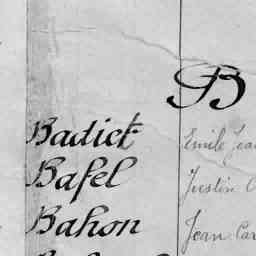 B
Badict Emile
Bafel Justin
Bahon Jean